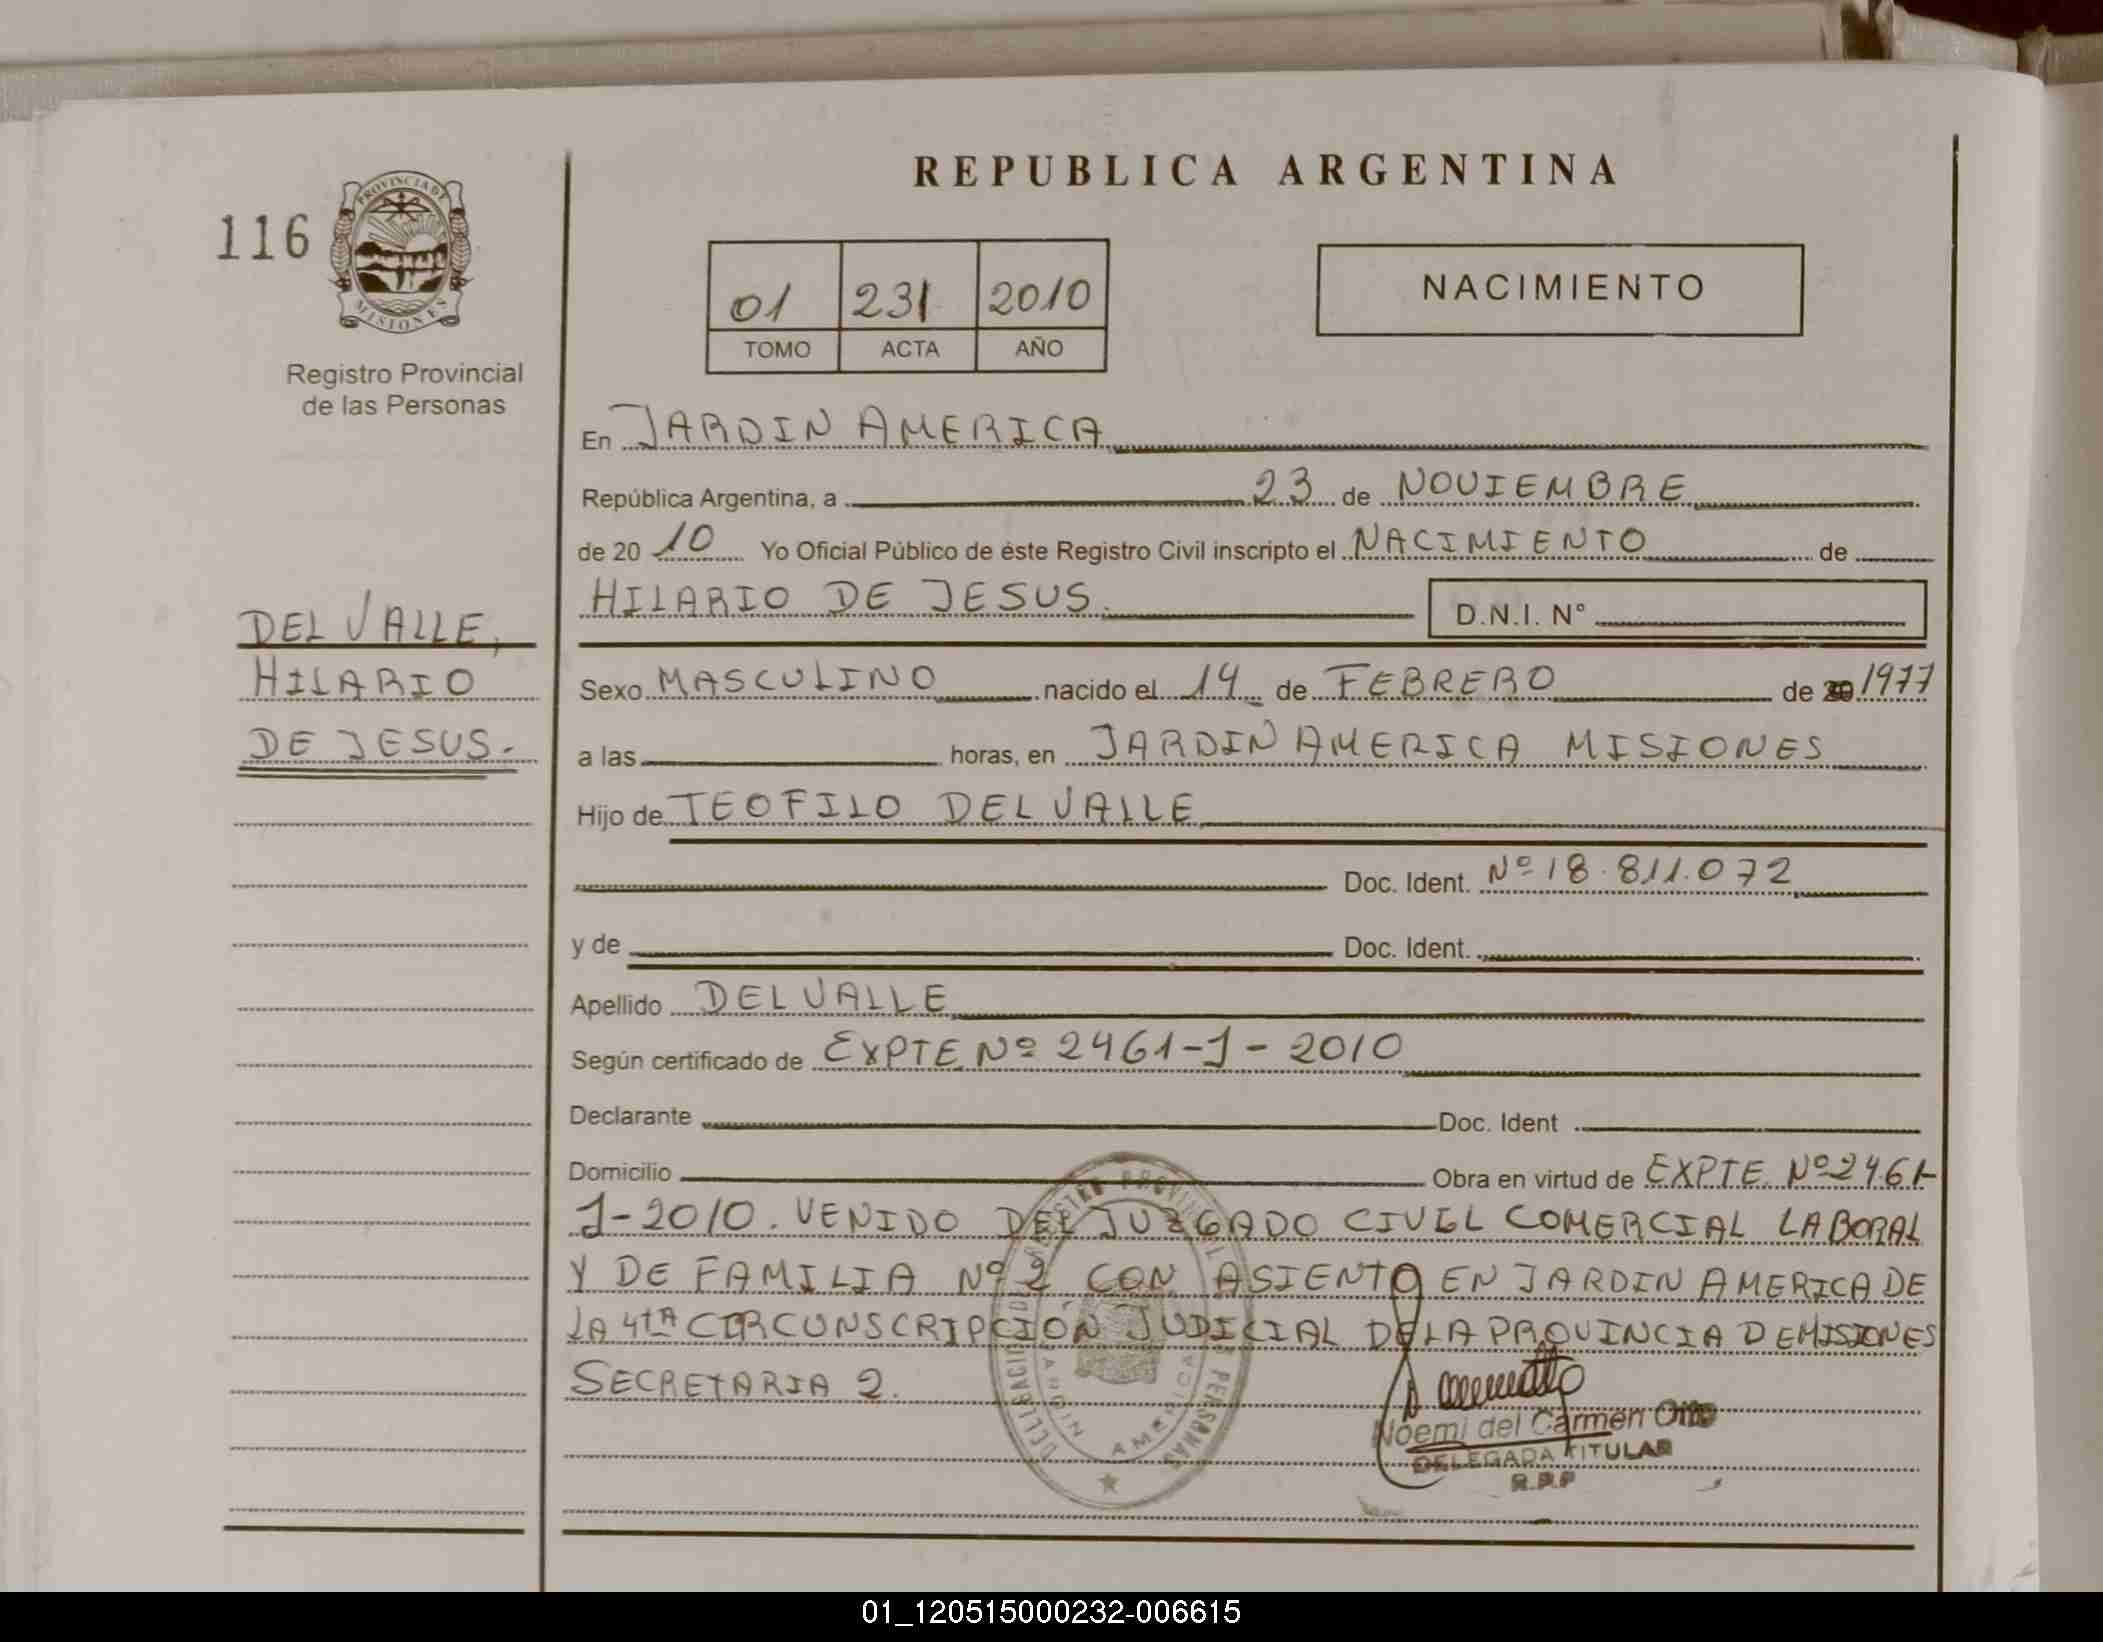 REPUBLICA ARGENTINA
116
PROVINCIA DE
MISIONES
Registro Provincial
de las Personas
01 231 2010
TOMO ACTA AÑO
NACIMIENTO
En JARDIN AMERICA
República Argentina, a 23 de NOVIEMBRE
de 20 10 Yo Oficial Público de éste Registro Civil inscripto el NACIMIENTO de
HILARIO DE JESUS. D.N.I. N°
DEL VALLE,
HILARIO
DE JESUS.-
Sexo MASCULINO nacido el 14 de FEBRERO de 20 1977
a las horas, en JARDIN AMERICA MISIONES
Hijo de TEOFILO DEL VALLE
Doc. Ident. Nº 18.811.072
y de Doc. Ident.
Apellido DEL VALLE
Según certificado de EXPTE Nº 2461-J-2010
Declarante Doc. Ident
Domicilio Obra en virtud de EXPTE. Nº 2461-
J-2010. VENIDO DEL JUZGADO CIVIL COMERCIAL LABORAL
Y DE FAMILIA Nº 2 CON ASIENTO EN JARDIN AMERICA DE
LA 4tA CIRCUNSCRIPCION JUDICIAL DE LA PROVINCIA DE MISIONES
SECRETARIA 2.
REGISTRO PROVINCIAL DE PERSONAS
JARDIN AMERICA
Noemi del Carmen
DELEGADA TITULAR
R.P.P
01_120515000232-006615